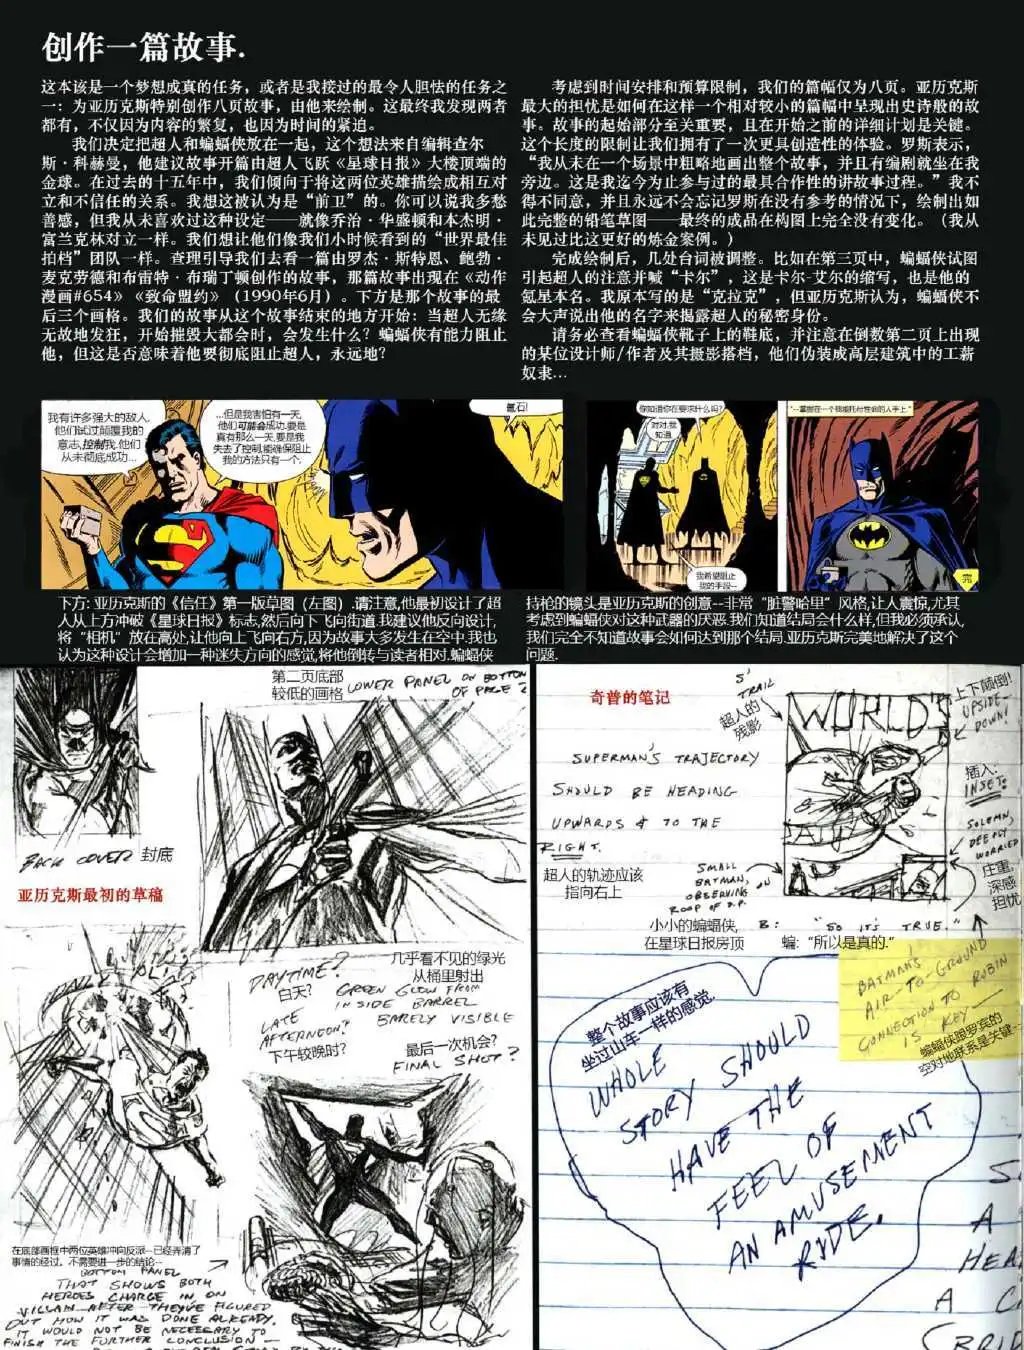 创作一篇故事.
这本该是一个梦想成真的任务，或者是我接过的最令人胆怯的任务之
一：为亚历克斯特别创作八页故事，由他来绘制。这最终我发现两者
都有，不仅因为内容的繁复，也因为时间的紧迫。
我们决定把超人和蝙蝠侠放在一起，这个想法来自编辑查尔
斯·科赫曼，他建议故事开篇由超人飞跃《星球日报》大楼顶端的
金球。在过去的十五年中，我们倾向于将这两位英雄描绘成相互对
立和不信任的关系。我想这被认为是“前卫”的。你可以说我多愁
善感，但我从未喜欢过这种设定——就像乔治·华盛顿和本杰明·
富兰克林对立一样。我们想让他们像我们小时候看到的“世界最佳
拍档”团队一样。查理引导我们去看一篇由罗杰·斯特恩、鲍勃·
麦克劳德和布雷特·布瑞丁顿创作的故事，那篇故事出现在《动作
漫画#654》《致命盟约》（1990年6月）。下方是那个故事的最
后三个画格。我们的故事从这个故事结束的地方开始：当超人无缘
无故地发狂，开始摧毁大都会时，会发生什么？蝙蝠侠有能力阻止
他，但这是否意味着他要彻底阻止超人，永远地？
考虑到时间安排和预算限制，我们的篇幅仅为八页。亚历克斯
最大的担忧是如何在这样一个相对较小的篇幅中呈现出史诗般的故
事。故事的起始部分至关重要，且在开始之前的详细计划是关键。
这个长度的限制让我们拥有了一次更具创造性的体验。罗斯表示，
“我从未在一个场景中粗略地画出整个故事，并且有编剧就坐在我
旁边。这是我迄今为止参与过的最具合作性的讲故事过程。”我不
得不同意，并且永远不会忘记罗斯在没有参考的情况下，绘制出如
此完整的铅笔草图——最终的成品在构图上完全没有变化。（我从
未见过比这更好的炼金案例。）
完成绘制后，几处台词被调整。比如在第三页中，蝙蝠侠试图
引起超人的注意并喊“卡尔”，这是卡尔-艾尔的缩写，也是他的
氪星本名。我原本写的是“克拉克”，但亚历克斯认为，蝙蝠侠不
会大声说出他的名字来揭露超人的秘密身份。
请务必查看蝙蝠侠靴子上的鞋底，并注意在倒数第二页上出现
的某位设计师/作者及其摄影搭档，他们伪装成高层建筑中的工薪
奴隶…
我有许多强大的敌人,
他们试过颠覆我的
意志,控制我.他们
从未彻底成功…
…但是我害怕有一天,
他们可能会成功.要是
真有那么一天,要是我
失去了控制,能确保阻止
我的方法只有一个.
氪石!
你知道你在要求什么吗?
对,对,我
知道.
我希望阻止
我的手段--
完
下方: 亚历克斯的《信任》第一版草图（左图）.请注意,他最初设计了超
人从上方冲破《星球日报》标志,然后向下飞向街道.我建议他反向设计,
将“相机”放在高处,让他向上飞向右方,因为故事大多发生在空中.我也
认为这种设计会增加一种迷失方向的感觉,将他倒转与读者相对.蝙蝠侠
持枪的镜头是亚历克斯的创意--非常“脏警哈里”风格,让人震惊,尤其
考虑到蝙蝠侠对这种武器的厌恶.我们知道结局会什么样,但我必须承认,
我们完全不知道故事会如何达到那个结局.亚历克斯完美地解决了这个
问题.
第二页底部
较低的画格
LOWER PANEL ON BOTTOM
OF PAGE 2
BACK COVER 封底
亚历克斯最初的草稿
DAYTIME?
白天?
LATE
AFTERNOON?
下午较晚时?
几乎看不见的绿光
从桶里射出
GREEN GLOW FROM
INSIDE BARREL
BARELY VISIBLE
最后一次机会?
FINAL SHOT?
在底部画框中两位英雄冲向反派--已经弄清了
事情的经过。不需要进一步的结论--
BOTTOM PANEL
THAT SHOWS BOTH
HEROES CHARGE IN ON
VILLAIN AFTER THEY'VE FIGURED
OUT HOW IT WAS DONE ALREADY.
IT WOULD NOT BE NECESSARY TO
FINISH THE FURTHER CONCLUSION —
奇普的笔记
S'
TRAIL
超人的
残影
WORLD'S
上下颠倒!
UPSIDE-
DOWN!
SUPERMAN'S TRAJECTORY
SHOULD BE HEADING
UPWARDS & TO THE
RIGHT.
超人的轨迹应该
指向右上
插入:
INSET:
SOLEMN,
DEEPLY
WORRIED
庄重,
深感
担忧
SMALL
BATMAN,
OBSERVING
ROOF OF D.P.
小小的蝙蝠侠,
在星球日报房顶
B: "SO IT'S TRUE."
蝙:“所以是真的.”
BATMAN'S
AIR-TO-GROUND
CONNECTION TO ROBIN
IS KEY—
蝙蝠侠跟罗宾的
空对地联系是关键--
整个故事应该有
坐过山车一样的感觉.
WHOLE
STORY SHOULD
HAVE THE
FEEL OF
AN AMUSEMENT
RIDE.
A
HEA
A C